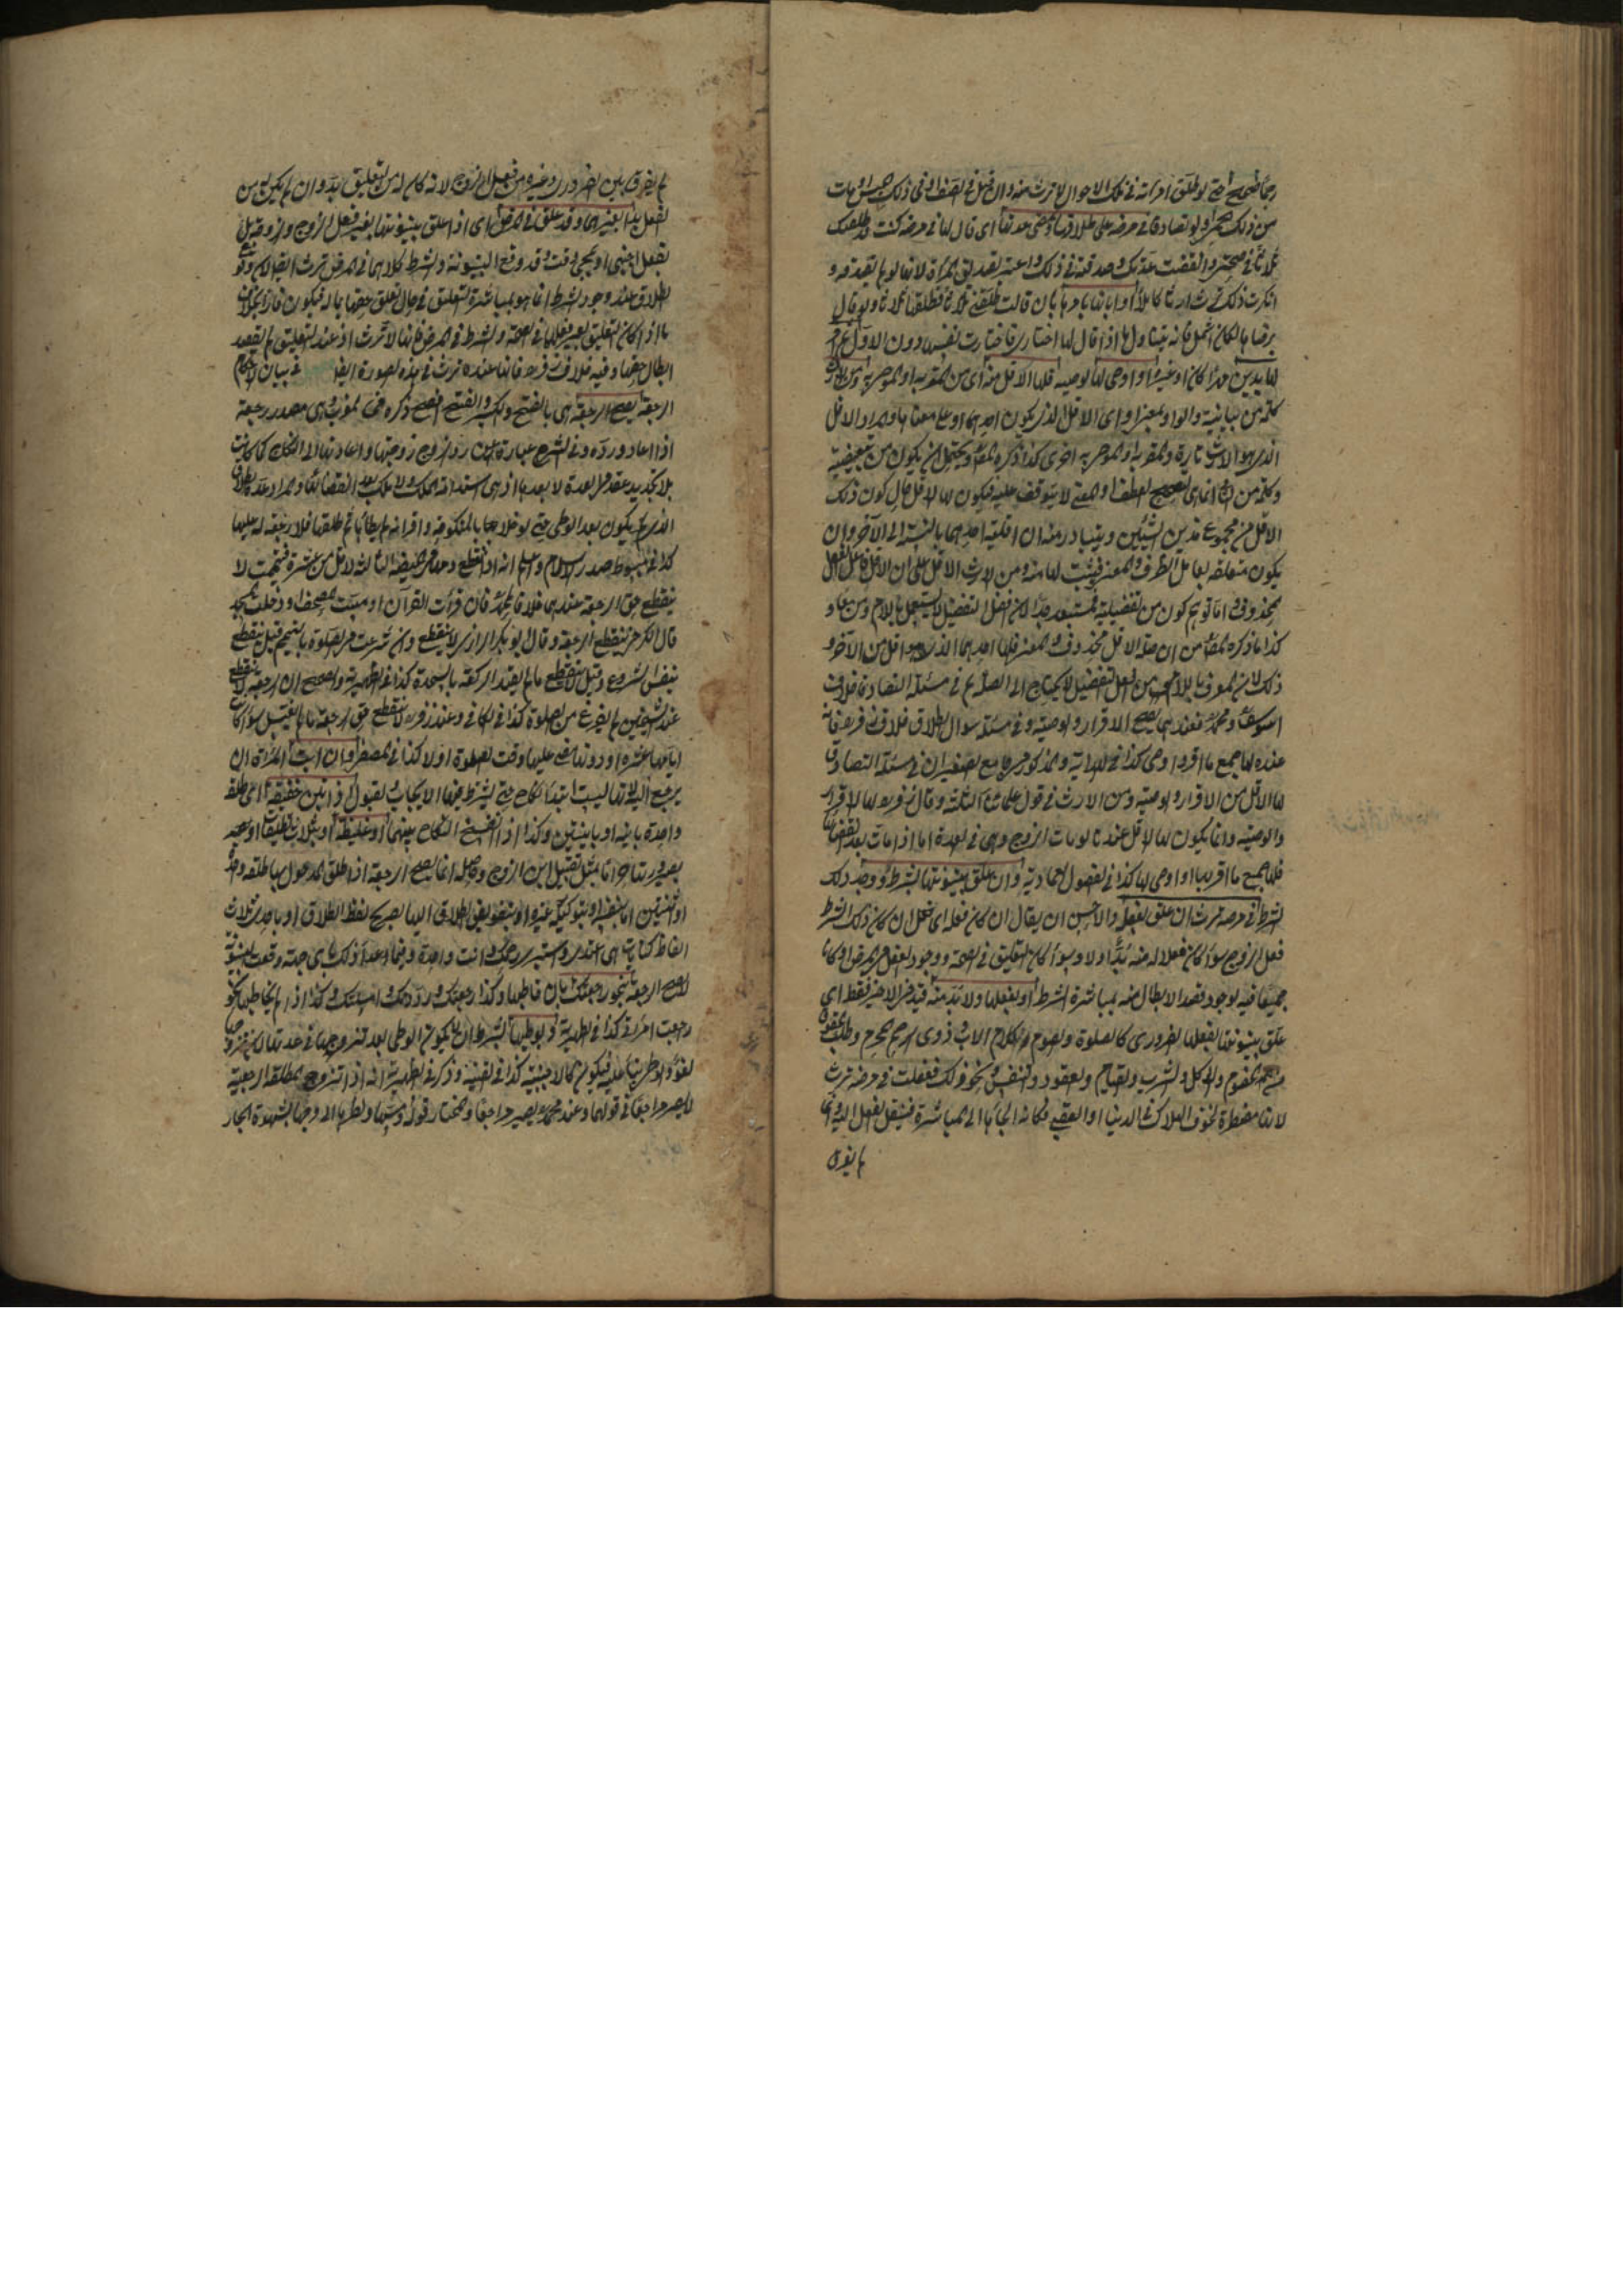 رجلا صحيح حتى لو طلق امرأته في تلك الاحوال لا ترث منه وان قتل في الصف او في ذلك الحبس او مات
من ذلك ولو تصادقا في مرضه على طلاقها ومضى عدتها اى قال لها في مرضه كنت قد طلقتك
ثلاثا في صحتى وانقضت عدتك وصدقته في ذلك واعتبر تصديق المرأة لانها لو لم تصدقه و
انكرت ذلك ترث ارثا كاملا او ابانها بامرها بان قالت طلقنى ثلاثا فطلقها ثلاثا ولو قال
برضاها لكان اشمل فانه يتناول ما اذا قال لها اختارى فاختارت نفسها دون الاول ثم اقر
لها بدين مهرا كان او غيره او اوصى لها بوصيه فلها الاقل منه اى من المقر به او الموصى به ومن الارث
كلمة من بيانية والواو بمعنى او اى الاقل الذى يكون احدهما او على معناها والمراد الاقل
الذى هو الارث تارة والمقر به او الموصى به اخرى كذا ذكره المص ويحتمل ان يكون من تبعيضية
وكلمة من انما هى لتصحيح العطف او المعنى لا يتوقف عليه فيكون لها الاقل حال كون ذلك
الاقل من مجموع هذين الشيئين ويتبادر منه ان اقلية احدهما بالنسبة الى الآخر وان
يكون متعلقه بعامل الظرف والمعنى فيثبت لها منه ومن الارث الاقل على ان الاقل فاعل الفعل
محذوف واما توهم كون من تفضيلية فمستبعد جدا لان افعل التفضيل لا يستعمل باللام ومن معا و
كذا ما ذكره المص من ان صلة الاقل محذوف والمعنى فلها احدهما الذى هو اقل من الآخر و
ذلك لان المعرف باللام من افعل التفضيل لا يحتاج الى الصلة ثم في مسئلة التصادق خلاف
ابى يوسف ومحمد فعندهما يصح الاقرار والوصية وفي مسئلة سوال الطلاق خلاف زفر فان
عنده لها جميع ما اقر واوصى كذا في الهداية والمذكور في جامع الصغير ان في مسئلة التصادق
لها الاقل من الاقرار والوصية ومن الارث في قول علمائنا الثلثة وقال زفر لها الاقرار
والوصية وانما يكون لها الاقل عندنا لو مات الزوج وهى في العدة اما اذا مات بعد انقضائها
فلها جميع ما اقر بها او اوصى لها كذا في الفصول العمادية وان علق بينونتها بشرط ووجد ذلك
الشرط في مرضه ترث ان علق بفعله والاحسن ان يقال ان كان فعله اى فعل ان كان ذلك الشرط
فعل الزوج سواء كان فعلا له منه بد او لا وسواء كان التعليق في الصحة ووجود الفعل في المرض او كانا
جميعا فيه لوجود قصد الابطال منه بمباشرة الشرط او بفعلها ولا بد منه قيد في الاخير فقط اى
علق بينونتها بفعلها الضرورى كالصلوة والصوم وكلام الاب وذوى الرحم المحرم وطلب الحقوق
من الخصوم والاكل والشرب والقيام والقعود والتنفس ونحو ذلك ففعلت في مرضه ترث
لانها مضطرة لخوف الهلاك في الدنيا او العقبى فكانه الجأها الى المباشرة فينتقل الفعل اليه وان
لم يفرق
لم يفرق بين الضرورى وغيره من فعل الزوج لانه كان له من التعليق بد وان لم يكن له من
الفعل بد او بغيرهما وقد علق في المرض اى اذا علق بينونتها بغير فعل الزوج والزوجة بل
بفعل اجنبى او بمجئ وقت وقد وقع البينونة والشرط كلاهما في المرض ترث ايضا لان وقوع
الطلاق عند وجود الشرط انما هو بمباشرة التعليق في حال تعلق حقها بماله فيكون فارا بخلاف
ما اذا كان التعليق بغير فعلهما في الصحة والشرط في المرض فانها لا ترث اذ عند التعليق لم يقصد
ابطال حقها وفيه خلاف زفر فانها عنده ترث في هذه الصورة ايضا في بيان احكام
الرجعة يصح الرجعة هى بالفتح والكسر والفتح افصح ذكره في المغرب وهى مصدر رجعه
اذا اعاده ورده وفي الشرع عبارة عن رد الزوج زوجتها واعادتها الى النكاح كما كانت
بلا تجديد عقد في العدة لا بعدها اذ هى استدامة الملك ولا ملك بعد انقضائها والمراد عدة الطلاق
الذى يكون بعد الوطى حتى لو خلا بالمنكوحة واقر انه لم يطأها ثم طلقها فلا رجعة له عليها
كذا في مبسوط صدر الاسلام واعلم انه اذا انقطع دمها في الحيضة الثالثة لاقل من عشرة فتيممت لا
ينقطع حق الرجعة عندهما خلافا لمحمد فان قرأت القرآن او مست المصحف او دخلت المسجد
قال الكرخى ينقطع الرجعة وقال ابو بكر الرازى لا ينقطع وان شرعت في الصلوة بالتيمم قيل ينقطع
بنفس الشروع وقيل لا ينقطع ما لم يقيد الركعة بالسجدة كذا في الظهيرية والصحيح ان الرجعة لا ينقطع
عند الشيخين لم يفرغ من الصلوة كذا في الكافى وعند زفر لا ينقطع حق الرجعة ما لم يغتسل سواء كان
ايامها عشرة او دونها مضى عليها وقت الصلوة اولا كذا في المصفى وان ابت المرأة ان
يرجع اليه لانها ليست ابتداء نكاح حتى يشترط فيها الايجاب والقبول اذا لم تبن خفيفة اى طلقة
واحدة باينة او باينتين وكذا اذا انفسخ النكاح بينهما او غليظة او بثلاث تطليقات او يتغير
بصيرورتها حراما بمثل تقبيل ابن الزوج وحاصله انما يصح الرجعة اذا طلق المدخول بها طلقة واحدة
او ثنتين اما بنفسه او بتوكيل غيره او بتفويض الطلاق اليها بصريح لفظ الطلاق او باحد ثلاث
الفاظ كنايات هى اعتدى واستبرى رحمك وانت واحدة وفيما عدا ذلك باى جهة وقعت البينونة
لا يصح الرجعة بنحو رجعتك بان خاطبها وكذا رجعتك ورددتك وامسكتك وكذا اذا لم يخاطبها نحو
رجعت امرأتى كذا في الظهيرية وبوطئها بشرط ان لا يكون الوطى بعد تزوجها في عدتها لان تزوجها
لغو والوطى بناء عليه فيكون كالاجنبية كذا في القنية وذكر في الظهيرية انه اذا تزوج المطلقة الرجعية
لا يصير مراجعا في قولهما وعند محمد يصير مراجعا والمختار قوله ومسها ونظره الى فرجها بشهوة الجار